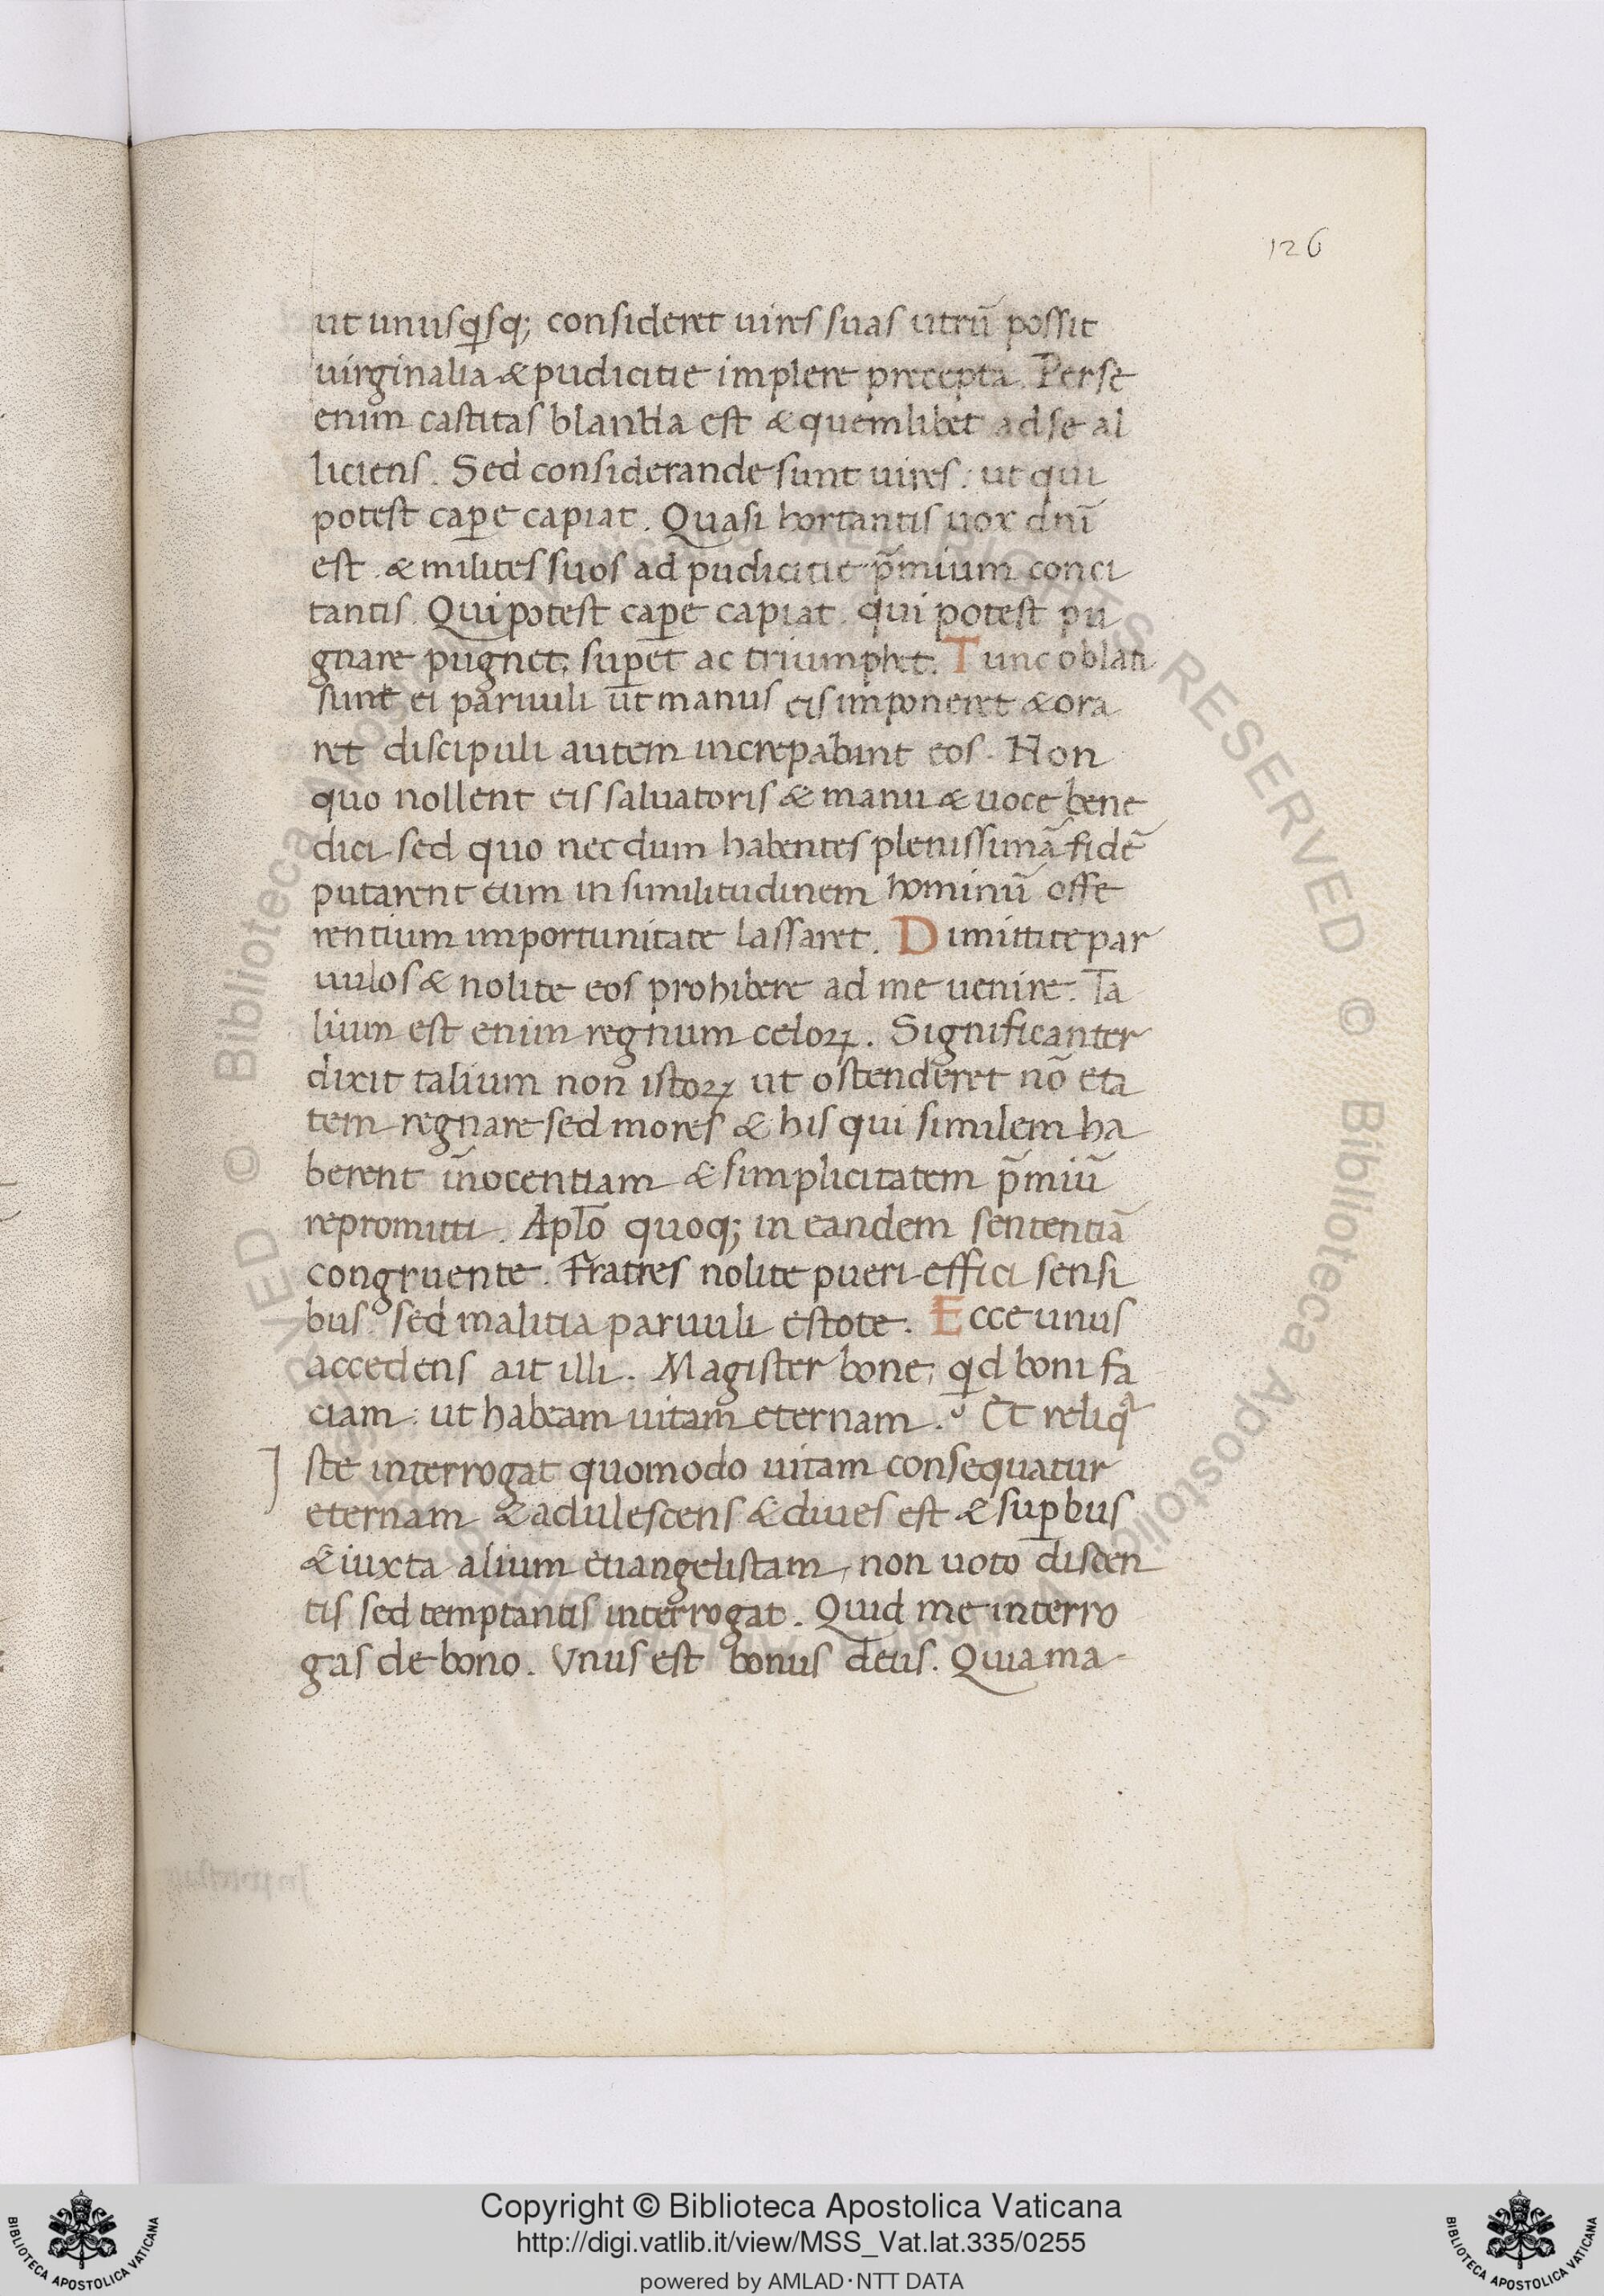 126
ut unusqisq; consideret uires suas utrū possit
uirginalia & pudicitie implere precepta. Per se
enim castitas blanda est & quemlibet ad se al
liciens. Sed considerande sunt uires: ut qui
potest cap̄e capiat. Quasi hortantis uox dn̄i
est & milites suos ad pudicitie p̄mium conci
tantis. Qui potest cap̄e capiat. qui potest pu
gnare pugnet: sup̄et ac triumphet. Tunc oblati
sunt ei paruuli ut manus eis imponeret & ora
ret discipuli autem increpabant eos. Non
quo nollent eis saluatoris & manu & uoce bene
dici sed quo nec dum habentes plenissimā fidē
putarent eum in similitudinem hominū offe
rentium importunitate lassaret. Dimittite par
uulos & nolite eos prohibere ad me uenire. Ta
lium est enim regnum celoꝝ. Significanter
dixit talium non istoꝝ ut ostenderet nō eta
tem regnare sed mores & his qui similem ha
berent īnocentiam & simplicitatem p̄miū
repromitti. Apl̄o quoq; in eandem sententiā
congruente. Fratres nolite pueri effici sensi
bus: sed malitia paruuli estote. Ecce unus
accedens ait illi. Magister bone, qid boni fa
ciam: ut habeam uitam eternam. Et reliqa
Iste interrogat quomodo uitam consequatur
eternam & adulescens & diues est & sup̄bus
& iuxta alium euangelistam, non uoto discen
tis sed temptantis interrogat. Quid me interro
gas de bono. Vnus est bonus deus. Quia ma-
Copyright © Biblioteca Apostolica Vaticana
http://digi.vatlib.it/view/MSS_Vat.lat.335/0255
powered by AMLAD·NTT DATA